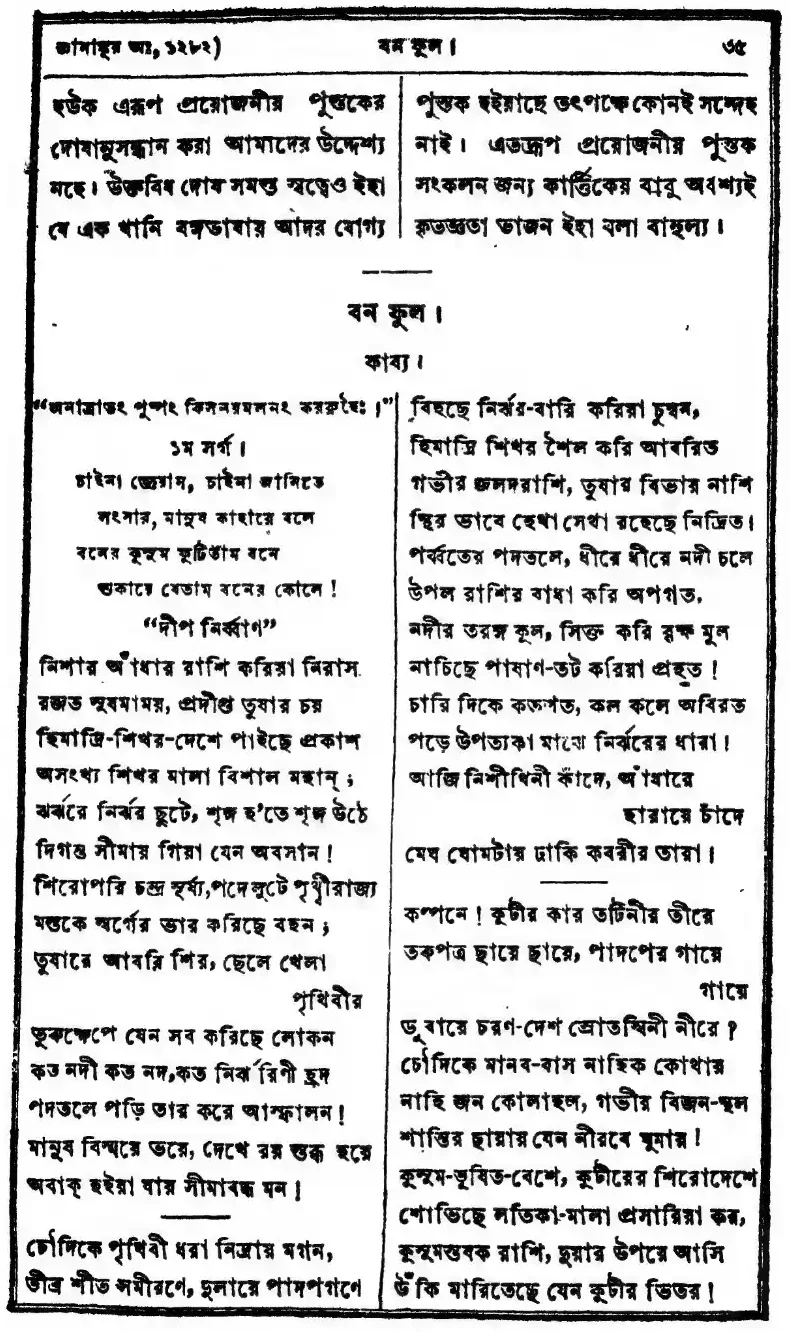 জ্ঞানাঙ্কুর অঃ, ১২৮২)
বন ফুল।
৩৫
হউক এরূপ প্রয়োজনীয় পুস্তকের
দোষানুসন্ধান করা আমাদের উদ্দেশ্য
নহে। উক্তবিধ দোষ সমস্ত স্বত্বেও ইহা
যে এক খানি বঙ্গভাষায় আদর যোগ্য
পুস্তক হইয়াছে তৎপক্ষে কোনই সন্দেহ
নাই। এতদ্রূপ প্রয়োজনীয় পুস্তক
সংকলন জন্য কার্ত্তিকেয় বাবু অবশ্যই
কৃতজ্ঞতা ভাজন ইহা বলা বাহুল্য।
বন ফুল।
কাব্য।
“অনাঘ্রাতং পুষ্পং কিসলয়মলনং কররুহৈঃ।”
১ম সর্গ।
চাইনা জ্ঞেয়ান, চাইনা জানিতে
সংসার, মানুষ কাহারে বলে
বনের কুসুম ফুটিতাম বনে
শুকায়ে যেতাম বনের কোলে!
“দীপ নির্ব্বাণ”
নিশার আঁধার রাশি করিয়া নিরাস
রজত সুষমাময়, প্রদীপ্ত তুষার চয়
হিমাদ্রি-শিখর-দেশে পাইছে প্রকাশ
অসংখ্য শিখর মালা বিশাল মহান্;
ঝর্ঝরে নির্ঝর ছুটে, শৃঙ্গ হ’তে শৃঙ্গ উঠে
দিগন্ত সীমায় গিয়া যেন অবসান!
শিরোপরি চন্দ্র সূর্য্য,পদে লুটে পৃথ্বীরাজ্য
মস্তকে স্বর্গের ভার করিছে বহন;
তুষারে আবরি শির, ছেলে খেলা
পৃথিবীর
ভুরুক্ষেপে যেন সব করিছে লোকন
কত নদী কত নদ,কত নির্ঝরিণী হ্রদ
পদতলে পড়ি তার করে আস্ফালন!
মানুষ বিস্ময়ে ভয়ে, দেখে রয় স্তব্ধ হয়ে
অবাক্ হইয়া যায় সীমাবদ্ধ মন।
চৌদিকে পৃথিবী ধরা নিদ্রায় মগন,
তীব্র শীত সমীরণে, দুলায়ে পাদপগণে
বিহছে নির্ঝর-বারি করিয়া চুম্বন,
হিমাদ্রি শিখর শৈল করি আবরিত
গভীর জলদরাশি, তুষার বিভায় নাশি
স্থির ভাবে হেথা সেথা রহেছে নিদ্রিত।
পর্ব্বতের পদতলে, ধীরে ধীরে নদী চলে
উপল রাশির বাধা করি অপগত,
নদীর তরঙ্গ কূল, সিক্ত করি বৃক্ষ মূল
নাচিছে পাষাণ-তট করিয়া প্রহত!
চারি দিকে কতশত, কল কলে অবিরত
পড়ে উপত্যকা মাঝে নির্ঝরের ধারা!
আজি নিশীথিনী কাঁদে, আঁধারে
হারায়ে চাঁদে
মেঘ ঘোমটায় ঢাকি কবরীর তারা।
কল্পনে! কুটীর কার তটিনীর তীরে
তরুপত্র ছায়ে ছায়ে, পাদপের গায়ে
গায়ে
ডুবায়ে চরণ-দেশ স্রোতস্বিনী নীরে?
চৌদিকে মানব-বাস নাহিক কোথায়
নাহি জন কোলাহল, গভীর বিজন-স্থল
শান্তির ছায়ায় যেন নীরবে ঘুমায়!
কুসুম-ভূষিত-বেশে, কুটীরের শিরোদেশে
শোভিছে লতিকা-মালা প্রসারিয়া কর,
কুসুমস্তবক রাশি, দুয়ার উপরে আসি
উঁকি মারিতেছে যেন কুটীর ভিতর!